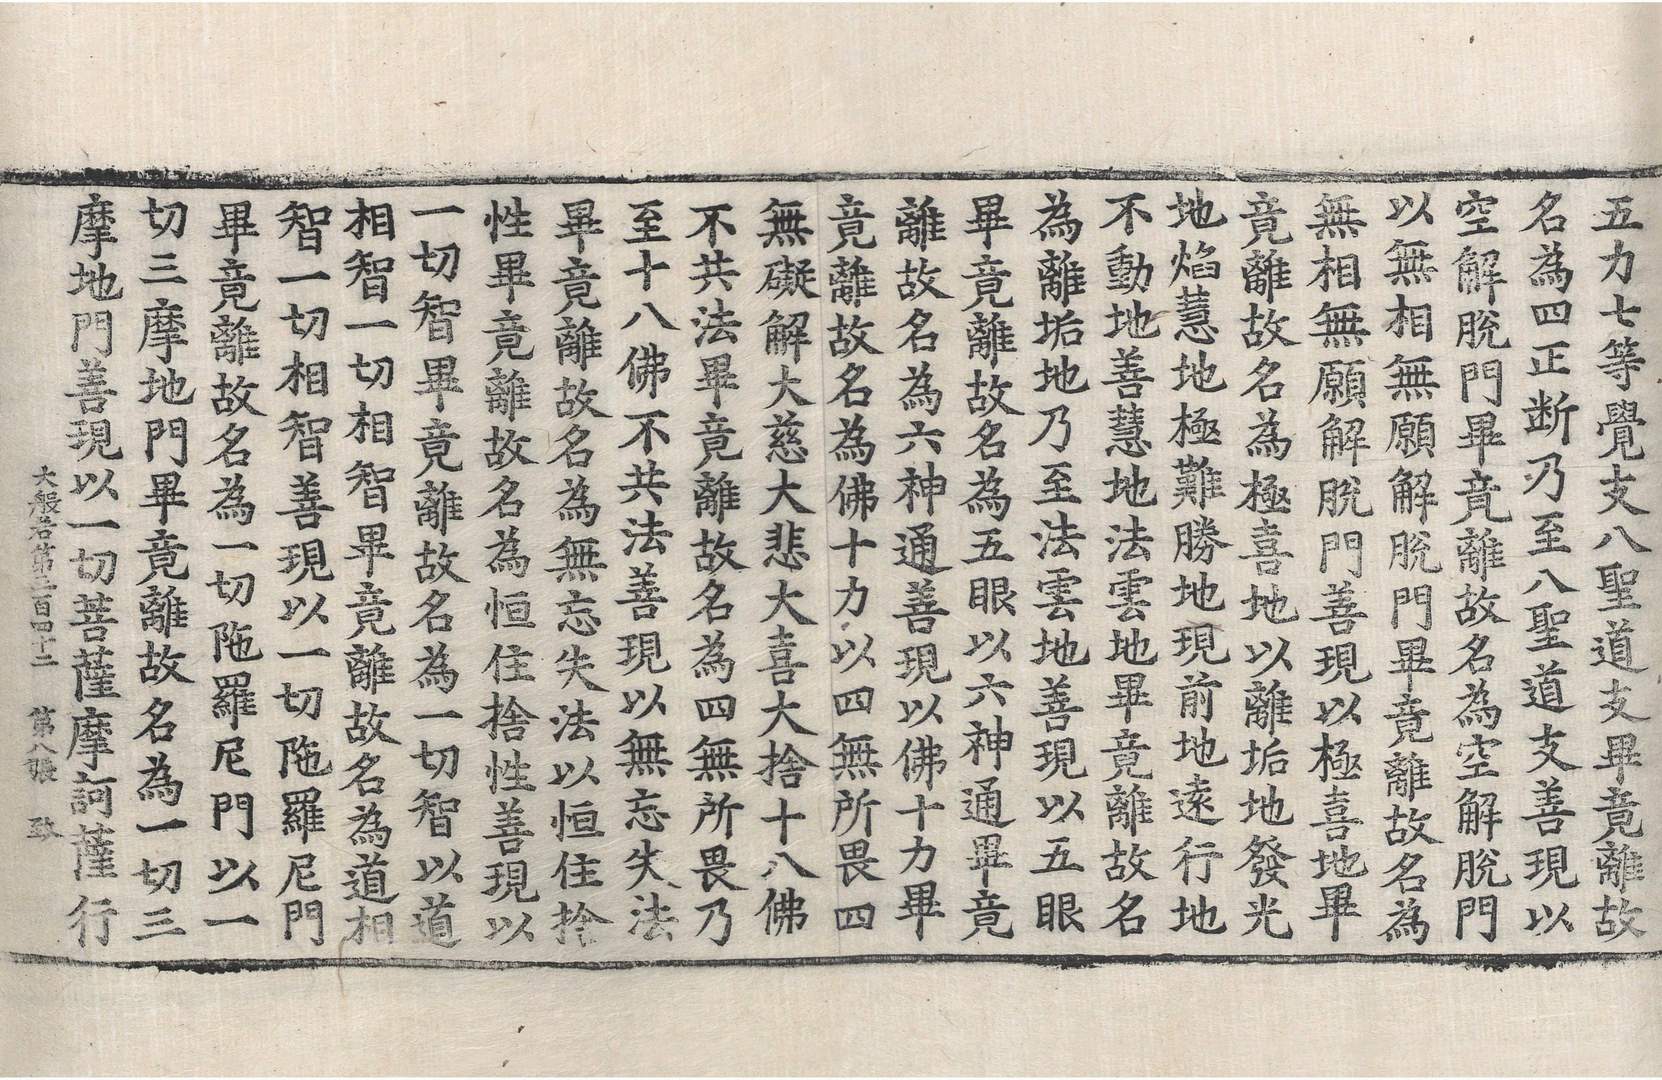 五力七等覺支八聖道支畢竟離故
名為四正断乃至八聖道支善現以
空解脫門畢竟離故名為空解脫門
以無相無願解脫門畢竟離故名為
無相無願解脫門善現以極喜地畢
竟離故名為極喜地以離垢地發光
地焰慧地極難勝地現前地遠行地
不動地善慧地法雲地畢竟離故名
為離垢地乃至法雲地善現以五眼
畢竟離故名為五眼以六神通畢竟
離故名為六神通善現以佛十力畢
竟離故名為佛十力以四無所畏四
無礙解大慈大悲大喜大捨十八佛
不共法畢竟離故名為四無所畏乃
至十八佛不共法善現以無忘失法
畢竟離故名為無忘失法以恒住捨
性畢竟離故名為恒住捨性善現以
一切智畢竟離故名為一切智以道
相智一切相智畢竟離故名為道相
智一切相智善現以一切陁羅尼門
畢竟離故名為一切陁羅尼門以一
切三摩地門畢竟離故名為一切三
摩地門善現以一切菩薩摩訶薩行
大般若第三百四十二 第八張 致